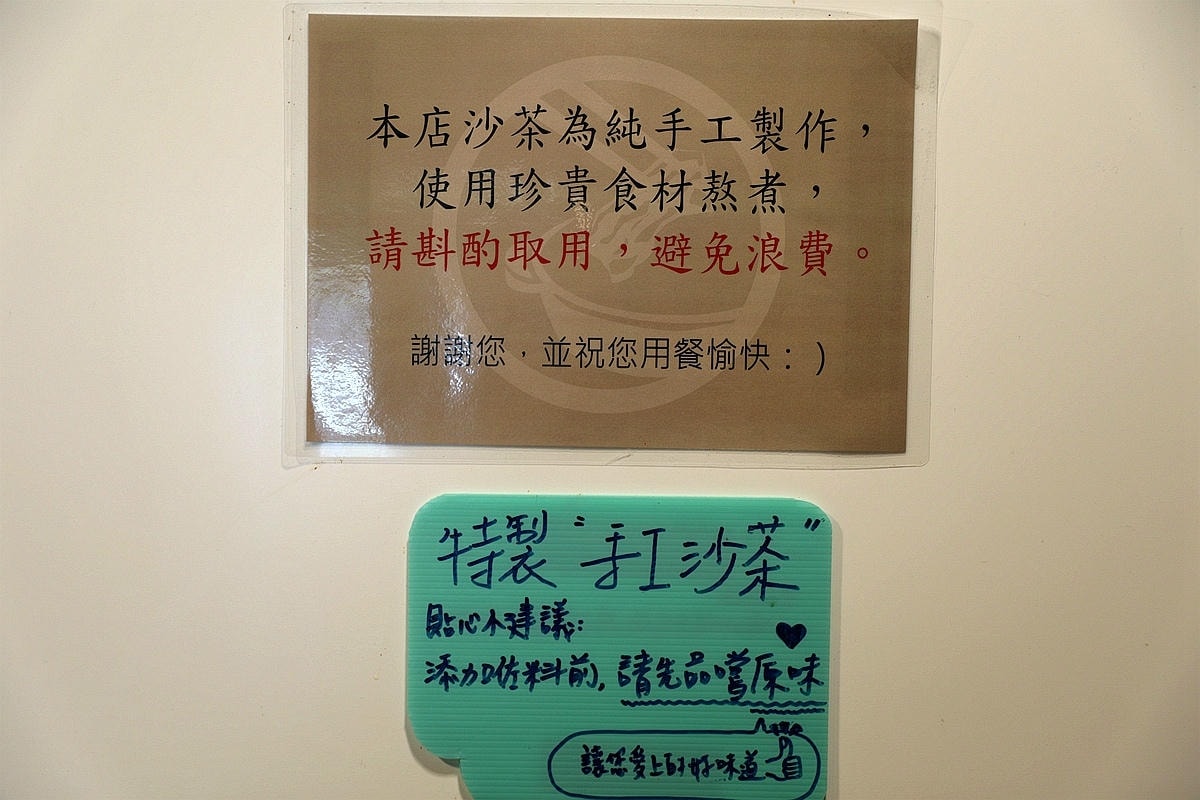 本店沙茶為純手工製作，
使用珍貴食材熬煮，
請斟酌取用，避免浪費。
謝謝您，並祝您用餐愉快：)
特製〝手工沙茶〞
貼心小建議:
添加佐料前,請先品嚐原味
讓您愛上的好味道